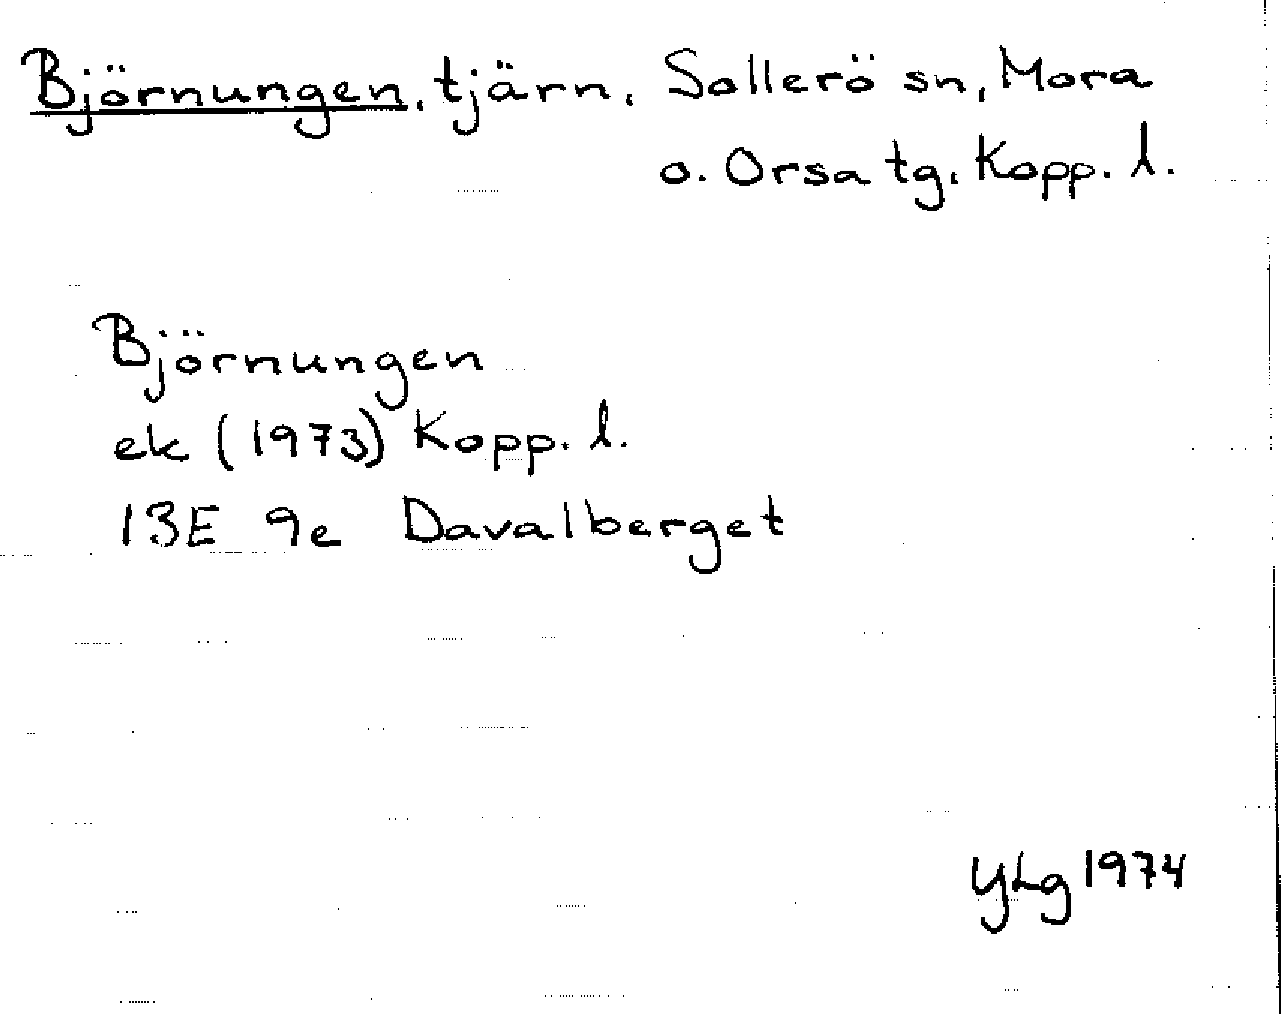 Björnungen, tjärn, Sollerö sn, Mora
o. Orsa tg, Kopp. l.
Björnungen
ek (1973) Kopp. l.
13E 9e Davalberget
YLg 1974